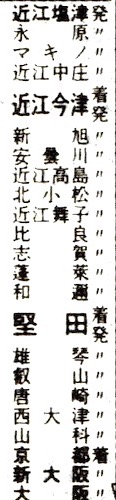 近江塩津 発
永原 〃
マキノ 〃
近江中庄 〃
近江今津 着発
新旭 〃
安曇川 〃
近江高島 〃
北小松 〃
近江舞子 〃
比良 〃
志賀 〃
蓬萊 〃
和邇 〃
堅田 着発
雄琴 〃
叡山 〃
唐崎 〃
西大津 〃
山科 〃
京都 着
新大阪 〃
大阪 〃